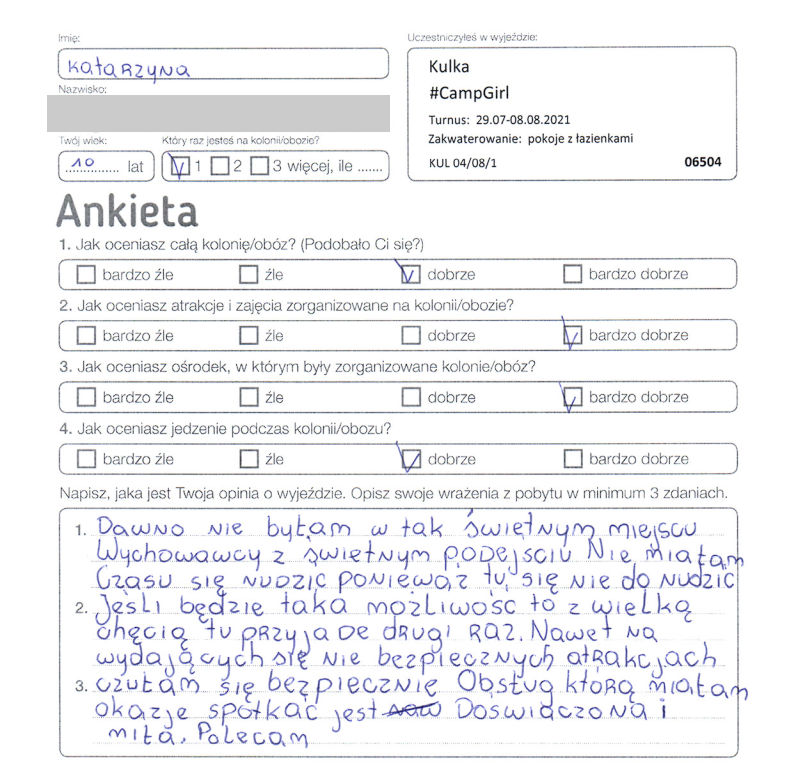 Imię:
Katarzyna
Nazwisko:
Twój wiek:
10 lat
Który raz jesteś na kolonii/obozie?
1 2 3 więcej, ile .......
Uczestniczyłeś w wyjeździe:
Kulka
#CampGirl
Turnus: 29.07-08.08.2021
Zakwaterowanie: pokoje z łazienkami
KUL 04/08/1 06504
Ankieta
1. Jak oceniasz całą kolonię/obóz? (Podobało Ci się?)
bardzo źle źle dobrze bardzo dobrze
2. Jak oceniasz atrakcje i zajęcia zorganizowane na kolonii/obozie?
bardzo źle źle dobrze bardzo dobrze
3. Jak oceniasz ośrodek, w którym były zorganizowane kolonie/obóz?
bardzo źle źle dobrze bardzo dobrze
4. Jak oceniasz jedzenie podczas kolonii/obozu?
bardzo źle źle dobrze bardzo dobrze
Napisz, jaka jest Twoja opinia o wyjeździe. Opisz swoje wrażenia z pobytu w minimum 3 zdaniach.
1. Dawno nie byłam w tak świetnym miejscu
Wychowawcy z świetnym podejsciu Nie miałam
Czasu się nudzić ponieważ tu się nie do nudzić
2. Jeśli będzie taka możliwość to z wielką
chęcią tu przyjade drugi raz. Nawet na
wydających się nie bezpiecznych atrakcjach
3. czułam się bezpiecznie Obsług którą miałam
okazje spotkać jest Doswiaczona i
miła. Polecam